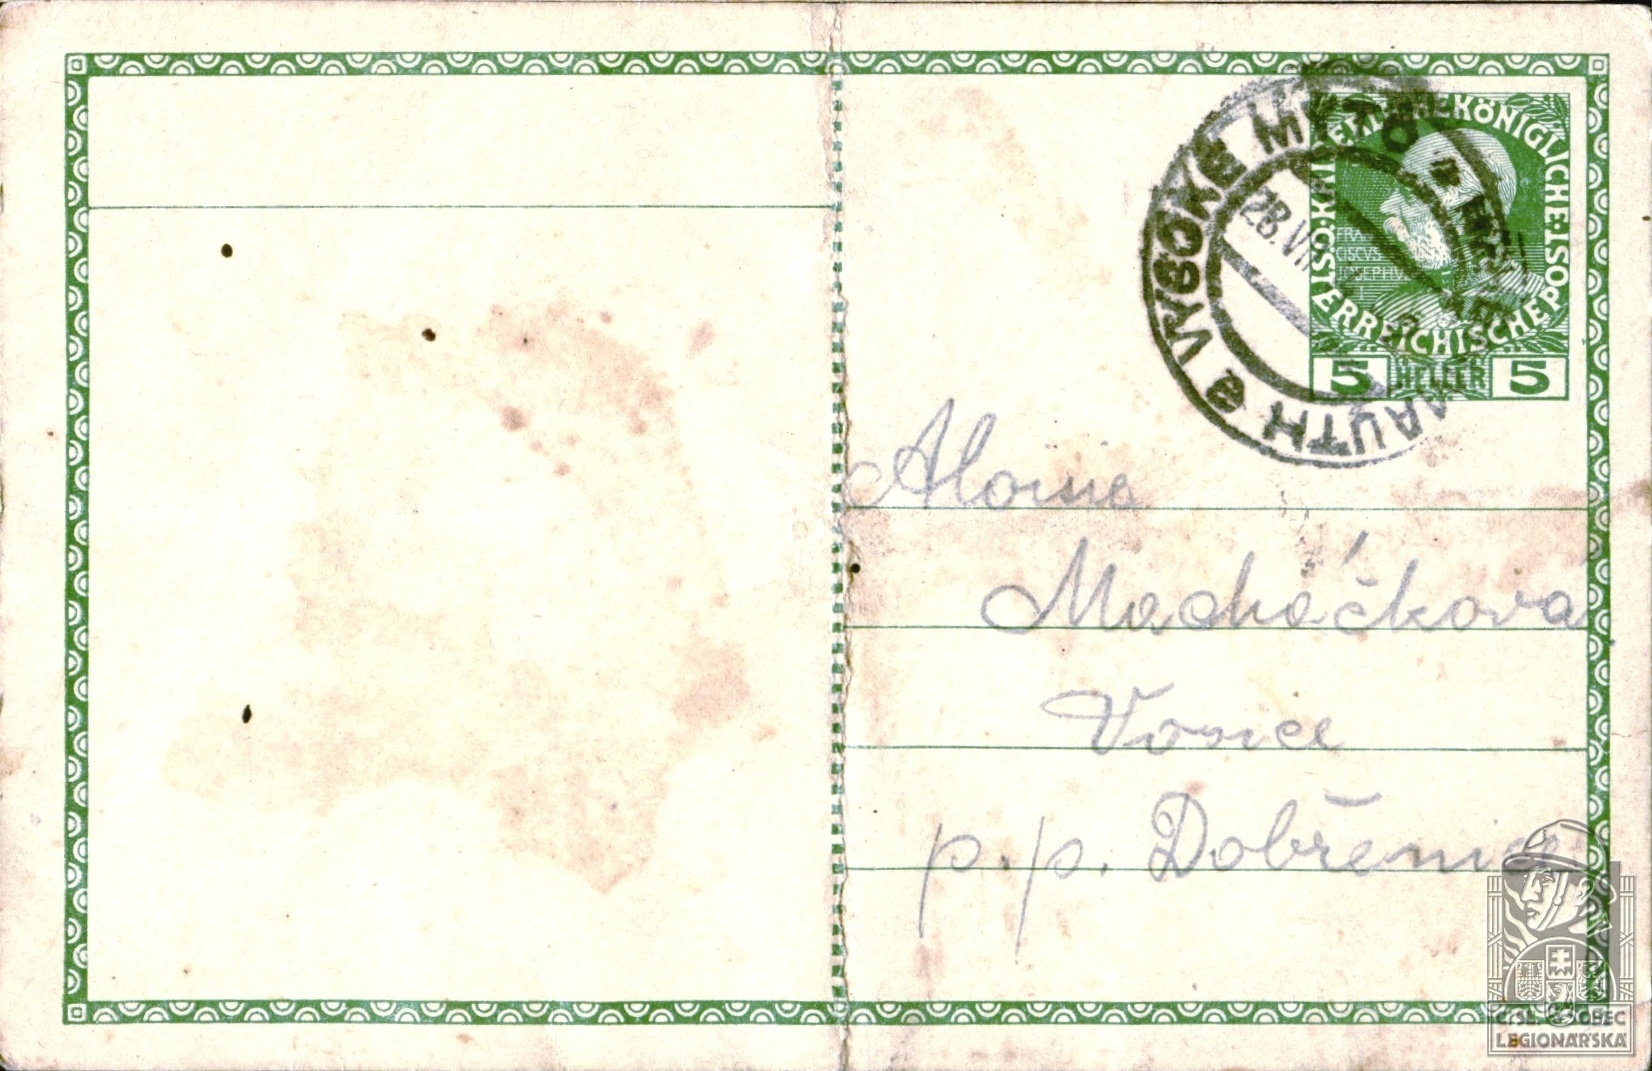 VYSOKÉ MÝTO
28. VII
MAUTH
KAISERLICHE KÖNIGLICHE ÖSTERREICHISCHE POST
FRAN
CISCVS
IOSEPHVS
5 HELLER 5
Aloisie
Macháčková
Vosice
p. p. Dobřenice
ČSL. OBEC
LEGIONÁŘSKÁ